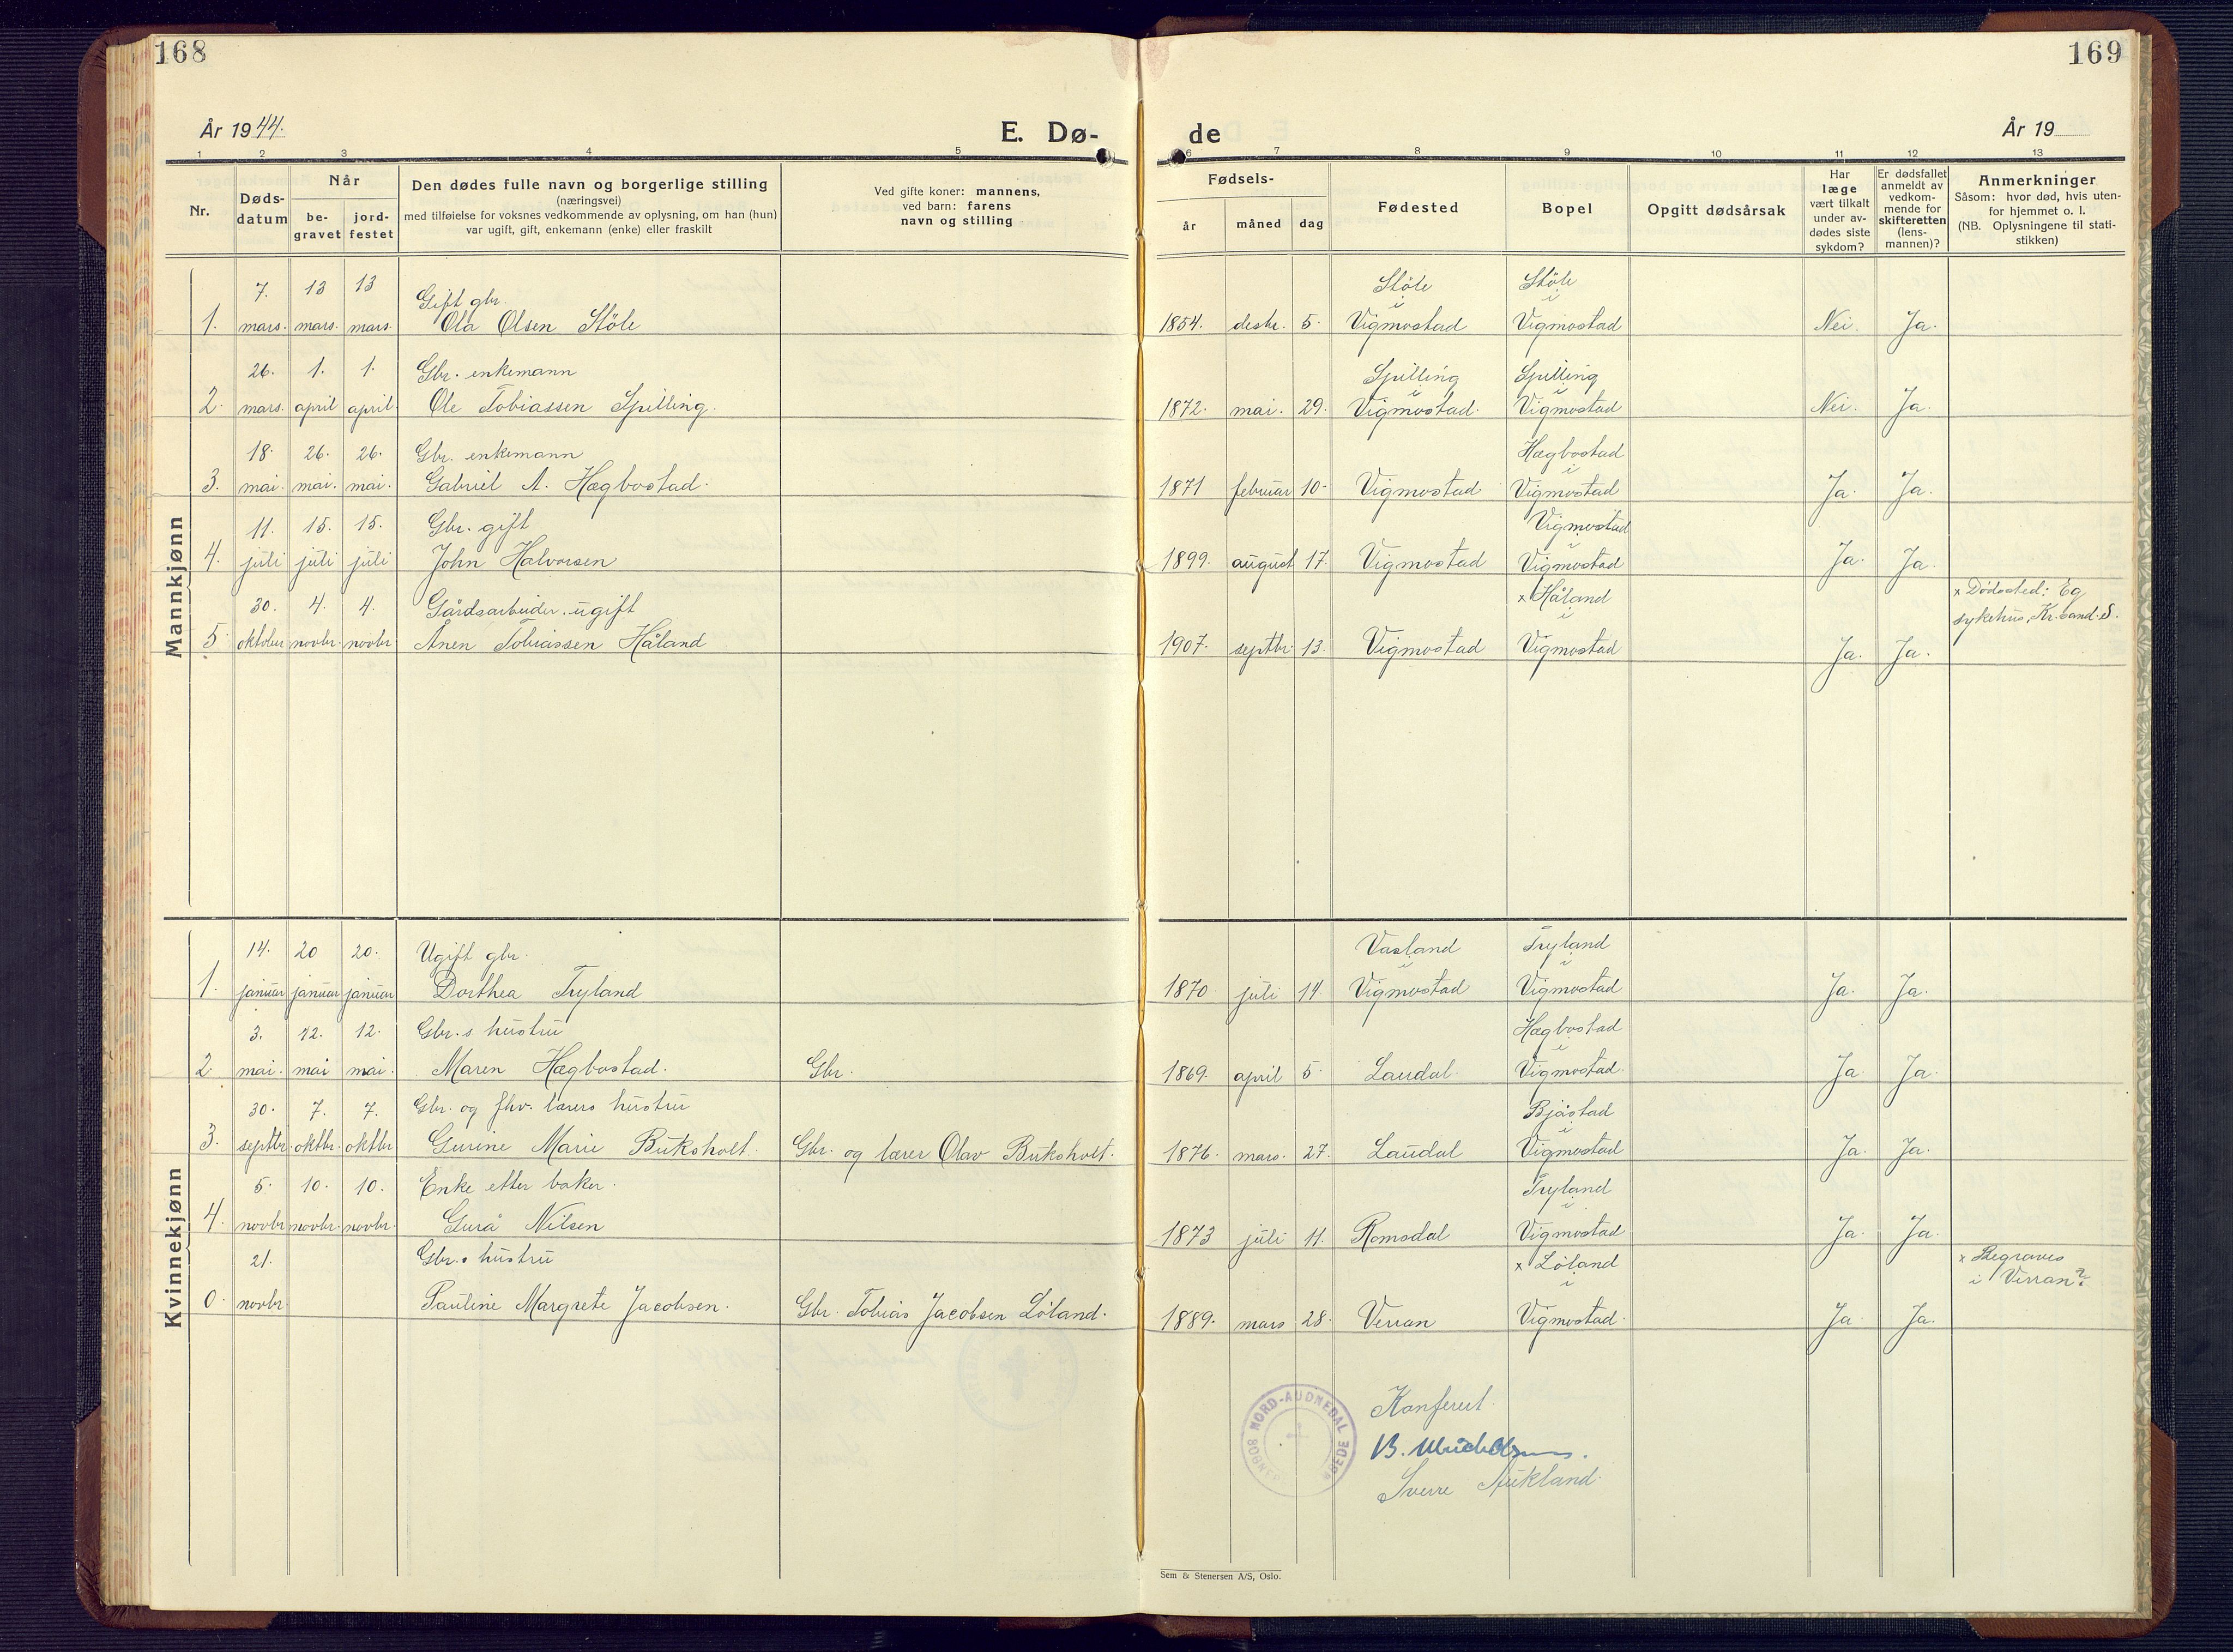 168
169
År 1944.
E. Dø-
de
År 19
1 2 3 4 5 6 7 8 9 10 11 12 13
Nr.
Døds-
datum
Når
be-
gravet
jord-
festet
Den dødes fulle navn og borgerlige stilling
(næringsvei)
med tilføielse for voksnes vedkommende av oplysning, om han (hun)
var ugift, gift, enkemann (enke) eller fraskilt
Ved gifte koner: mannens,
ved barn: farens
navn og stilling
Fødsels-
år måned dag
Fødested
Bopel
Opgitt dødsårsak
Har
læge
vært tilkalt
under av-
dødes siste
sykdom?
Er dødsfallet
anmeldt av
vedkom-
mende for
skifteretten
(lens-
mannen)?
Anmerkninger
Såsom: hvor død, hvis uten-
for hjemmet o. l.
(NB. Oplysningene til stati-
stikken)
Mannkjønn
7. 13 13 Gift gbr. Støle i Støle i
1. mars. mars. mars. Ola Olsen Støle 1854. desbr. 5. Vigmostad Vigmostad Nei. Ja.
26. 1. 1. Gbr. enkemann Spilling i Spilling i
2. mars. april april. Ole Tobiassen Spilling. 1872. mai. 29. Vigmostad. Vigmostad Nei. Ja.
18. 26. 26. Gbr. enkemann Hægbostad i
3. mai. mai. mai. Gabriel A. Hægbostad. 1871 februar 10. Vigmostad Vigmostad Ja. Ja.
11. 15. 15. Gbr. gift Vigmostad i
4. juli juli juli John Halvorsen 1899. august 17. Vigmostad Vigmostad Ja. Ja.
30. 4. 4. Gårdsarbeider. ugift x Håland i x Dødssted: Eg
sykehus, Kr.sand. S.
5. oktober novbr. novbr Ånen Tobiassen Håland 1907. septbr. 13. Vigmostad Vigmostad Ja. Ja.
Kvinnekjønn
14. 20 20. Ugift gbr. Vasland i Tryland i
1. januar januar januar Dorthea Tryland 1870 juli 14 Vigmostad Vigmostad Ja. Ja.
3. 12. 12. Gbr.s hustru Hægbostad i
2 mai. mai mai. Maren Hægbostad. Gbr. 1869. april 5. Laudal. Vigmostad. Ja. Ja.
30. 7. 7. Gbr. og fhv. lærers hustru Bjåstad i
3. septbr. oktbr. oktbr Gurine Marie Buksholt. Gbr. og lærer Olav Buksholt. 1876. mars. 27. Laudal Vigmostad Ja. Ja.
5. 10. 10. Enke etter baker. Tryland i
4. novbr novbr. novbr. Gurå Nilsen 1873 juli 11. Romsdal Vigmostad Ja. Ja.
21. Gbr.s hustru x Løland i x Begraves
i Verran?
0. novbr. Pauline Margrete Jacobsen. Gbr. Tobias Jacobsen Løland. 1889. mars 28. Verran Vigmostad. Ja. Ja.
NORD-AUDNEDAL
Konferert.
Sverre
Sem & Stenersen A/S, Oslo.